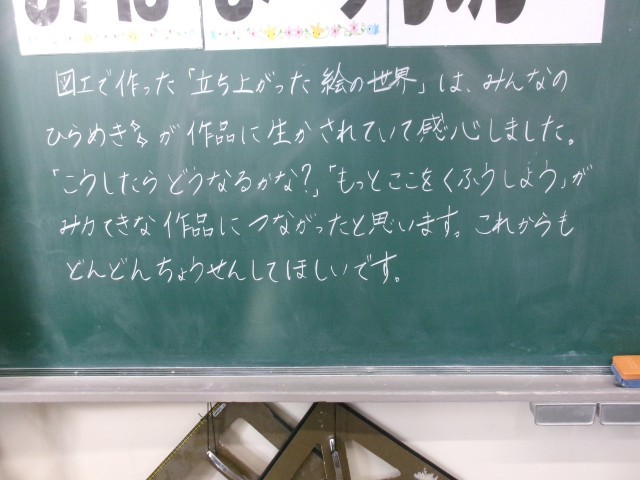 図工で作った「立ち上がった絵の世界」は、みんなの
ひらめきが作品に生かされていて感心しました。
「こうしたらどうなるかな?」「もっとここをくふうしよう」が
みりてきな作品につながったと思います。これからも
どんどんちょうせんしてほしいです。